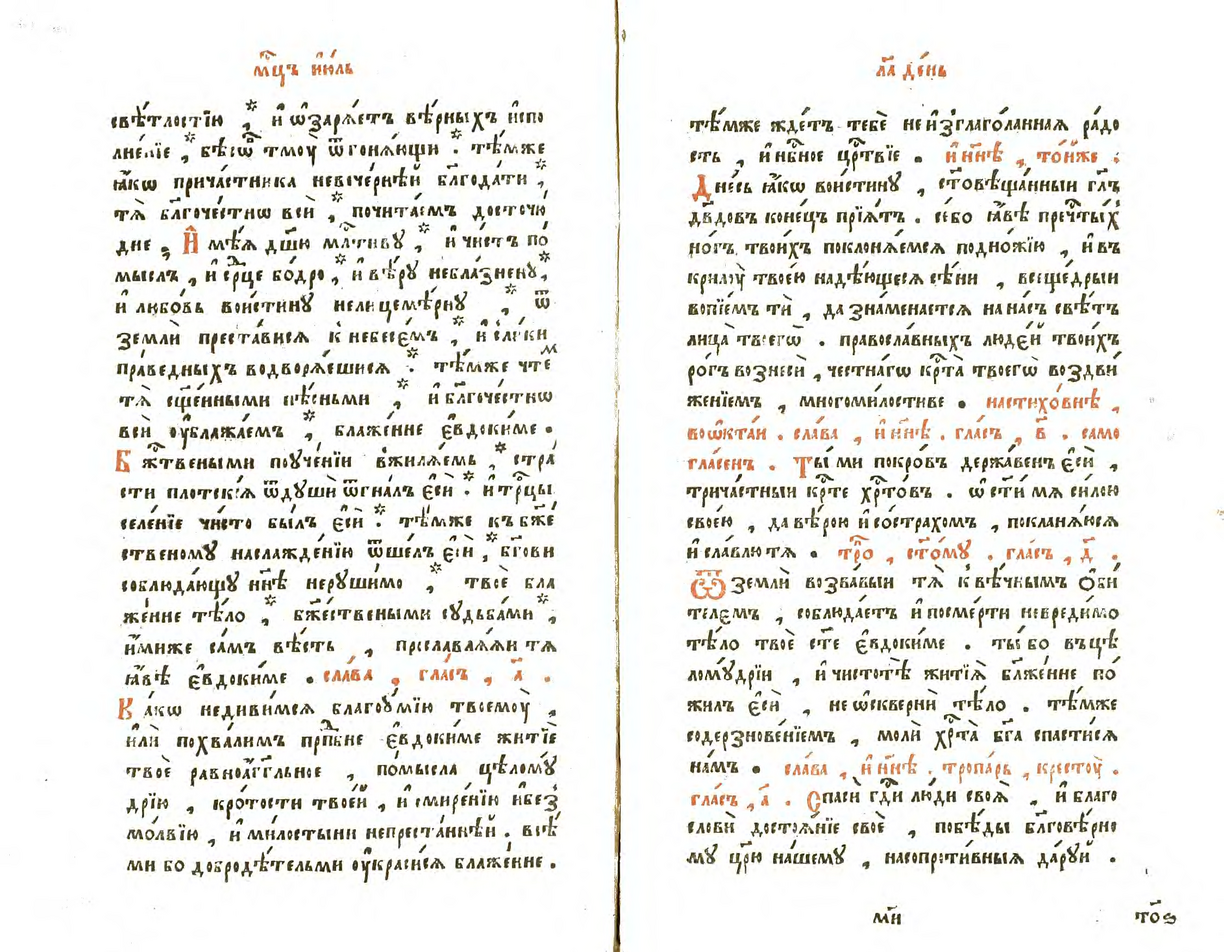 мⷭ҇цъ і҆ю́ль
свѣ́тлостїю , и҆ ѡ҆заря́етъ вѣ́рныхъ и҆спо
лне́нїе , бѣсѡ́въ тмоу̀ ѿгоня́ющи . тѣ́мже
ꙗ҆́кѡ прича́стника невече́рнѣй бл҃года́ти ,
тѧ̀ бл҃гоче́стнѡ всѝ , почита́емъ досточю́
дне , И҆мѣ́ѧ дш҃ю мл҃тиву , и҆ чи́стъ по́
мыслъ , и҆ срⷣце бо́дро , и҆ вѣ́ру небла́знену ,
и҆ любо́вь вои́стину нелицемѣ́рну , ѿ
землѝ преста́висѧ к небесе́мъ , и҆ сли́ки
пра́ведныхъ водворѧ́ешисѧ . тѣ́мже чте́м
тѧ̀ сщ҃е́нными пѣ́сньми , и҆ бл҃гоче́стнѡ
всѝ оу҆блажа́емъ , блаже́нне є҆вдоки́ме .
Бжⷭ҇твеными поуче́нїи вжилѧ́емь , стра́
сти плотскі́ѧ ѿдушѝ ѿгна́лъ є҆сѝ . и҆ трⷪ҇цы
селе́нїе чи́сто бы́лъ є҆сѝ . тѣ́мже къ бж҃е́
ственому наслажде́нїю ѿше́лъ є҆сѝ , бг҃ови
соблюда́ющу нн҃ѣ неруши́мо , твоѐ бла
же́нне тѣ́ло , бж҃е́ствеными судьба́ми ,
и҆́миже са́мъ вѣ́сть , прославлѧ́ѧи тѧ
ꙗ҆́вѣ є҆вдоки́ме . сла́ва , гла́съ , а҃ .
Ка́кѡ недиви́мсѧ благоу́мїю твоемоу̀ ,
и҆лѝ похва́лимъ прпⷣбне є҆вдоки́ме житїѐ
твоѐ равноа́гг҃льное , по́мысла цѣлому́
дрїю , кро́тости твое́й , и҆ смире́нїю и҆без̾
мо́лвїю , и҆ ми́лостыни непреста́ннѣй . всѣ́
ми бо добродѣ́тельми оу҆кра́сисѧ блаже́нне .
л҃а де́нь
тѣ́мже жде́тъ тебѐ неи҆зглаго́ланнаѧ ра́до
сть , и҆ нбⷭ҇ное црⷭ҇твїе . и҆ нн҃ѣ , то́йже .
Дне́сь ꙗ҆́кѡ вои́стину , ст҃овѣща́нныи гл҃ъ
дв҃довъ коне́цъ прїѧ́тъ . се́бо ꙗ҆́вѣ пречⷭ҇тыхъ
но́гъ твои́хъ поклонѧ́емсѧ подно́жїю , и҆ въ
крилоу̀ твое́ю надѣ́ющесѧ сѣ́ни , всеще́дрыи
вопїе́мъ тѝ , да зна́менаетсѧ на на́съ свѣ́тъ
лица̀ твоегѡ̀ . правосла́вныхъ люде́й твои́хъ
ро́гъ вознесѝ , честна́гѡ крⷭ҇та̀ твоегѡ̀ воздви́
же́нїемъ , многоми́лостиве . настихо́внѣ ,
воѡ҆кта́и . сла́ва , и҆ нн҃ѣ . гла́съ , в҃ . само
гла́сенъ . Ты́ ми покро́въ держа́венъ є҆сѝ ,
трича́стныи крⷭ҇те хрⷭ҇то́въ . ѡ҆ст҃и́ мѧ си́лою
свое́ю , да вѣ́рою и҆ со стра́хомъ , покланѧ́юсѧ
и҆ сла́влю тѧ . трⷪ҇ , ст҃о́му . гла́съ , д҃ .
Ѿ землѝ возва́выи тѧ̀ к вѣ́чнымъ ѻ҆би́
телемъ , соблюда́етъ и҆ посме́рти невреди́мо
тѣ́ло твоѐ ст҃е є҆вдоки́ме . ты́ бо въ цѣ
лому́дрїи , и҆ чистотѣ̀ житїѧ̀ бл҃же́нне по́
жилъ є҆сѝ , не ѡ҆скве́рнивъ тѣ́ло . тѣ́мже
содерзнове́нїемъ , молѝ хрⷭ҇та̀ бг҃а спасти́сѧ
на́мъ . сла́ва , и҆ нн҃ѣ . тропа́рь , кресто́у .
гла́съ , а҃ . Спасѝ гдⷭ҇и лю́ди своѧ̀ , и҆ благо
словѝ достоѧ́нїе своѐ , побѣ́ды бл҃говѣ́рно
му цр҃ю̀ на́шему , насопроти́вныѧ да́руй .
мⷩ҇и